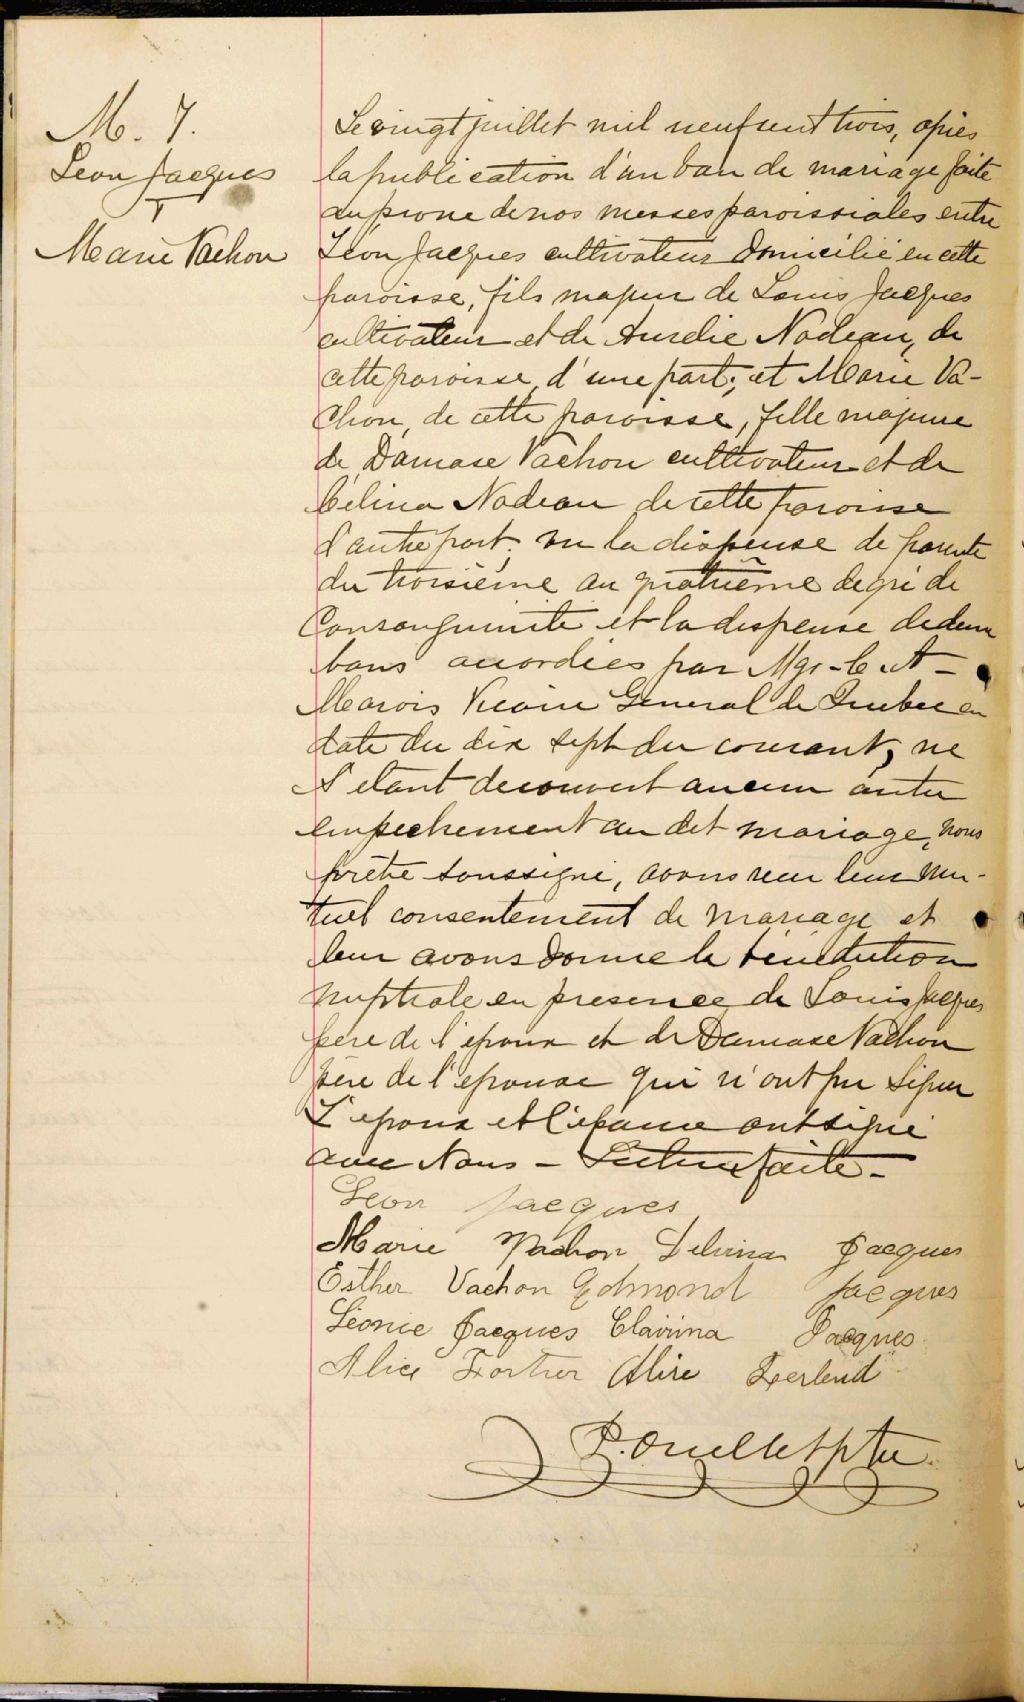 M. 7.
Leon Jacques
&
Marie Vachon
Le vingt juillet mil neuf cent trois, après
la publication d'un ban de mariage faite
au prone de nos messes paroissiales entre
Léon Jacques cultivateur domicilié en cette
paroisse, fils majeur de Louis Jacques
cultivateur et de Aurelie Nadeau, de
cette paroisse, d'une part; et Marie Va-
chon, de cette paroisse, fille majeure
de Damase Vachon cultivateur et de
Célina Nadeau de cette paroisse
d'autre part; vu la dispense de parenté
du troisième au quatrième degré de
Consanguinité et la dispense de deux
bans accordées par Mgr C. A.
Marois Vicaire General de Quebec en
date du dix sept du courant, ne
s'etant decouvert aucun autre
empechement au dit mariage, nous
prêtre soussigné, avons reçu leur mu-
tuel consentement de mariage et
leur avons donné la bénédiction
nuptiale en presence de Louis Jacques
père de l'epoux et de Damase Vachon
père de l'epouse qui n'ont pu signer
L'epoux et l'épouse ont signé
avec Nous - Lecture faite -
Leon Jacques
Marie Vachon Delvina Jacques
Esther Vachon Edmond Jacques
Léonie Jacques Clairina Jacques
Alice Fortier Alire Ferlend
P. Ouellet ptre